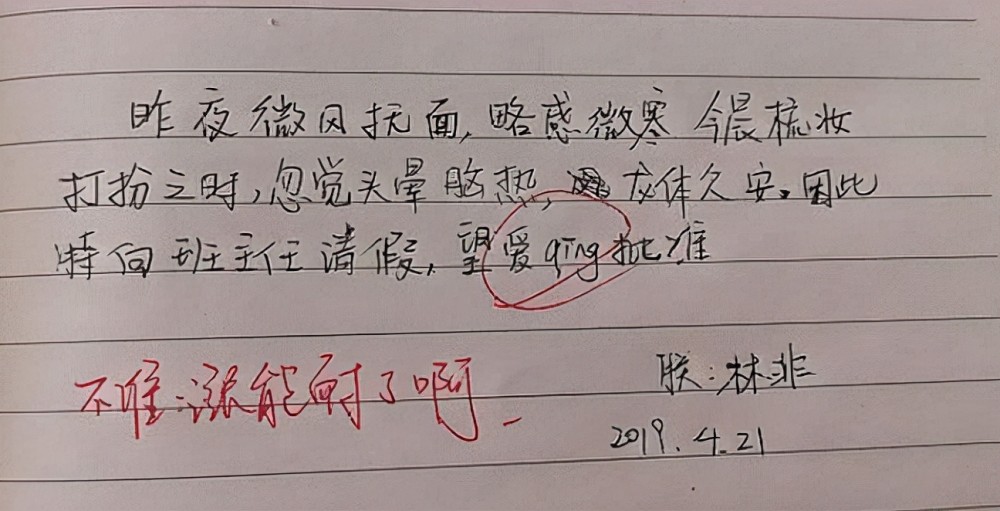 昨夜微风抚面,略感微寒 今晨梳妆
打扮之时,忽觉头晕脑热, 龙体欠安。因此
特向班主任请假,望爱qing批准
不准:涨能耐了啊
朕:林非
2019.4.21